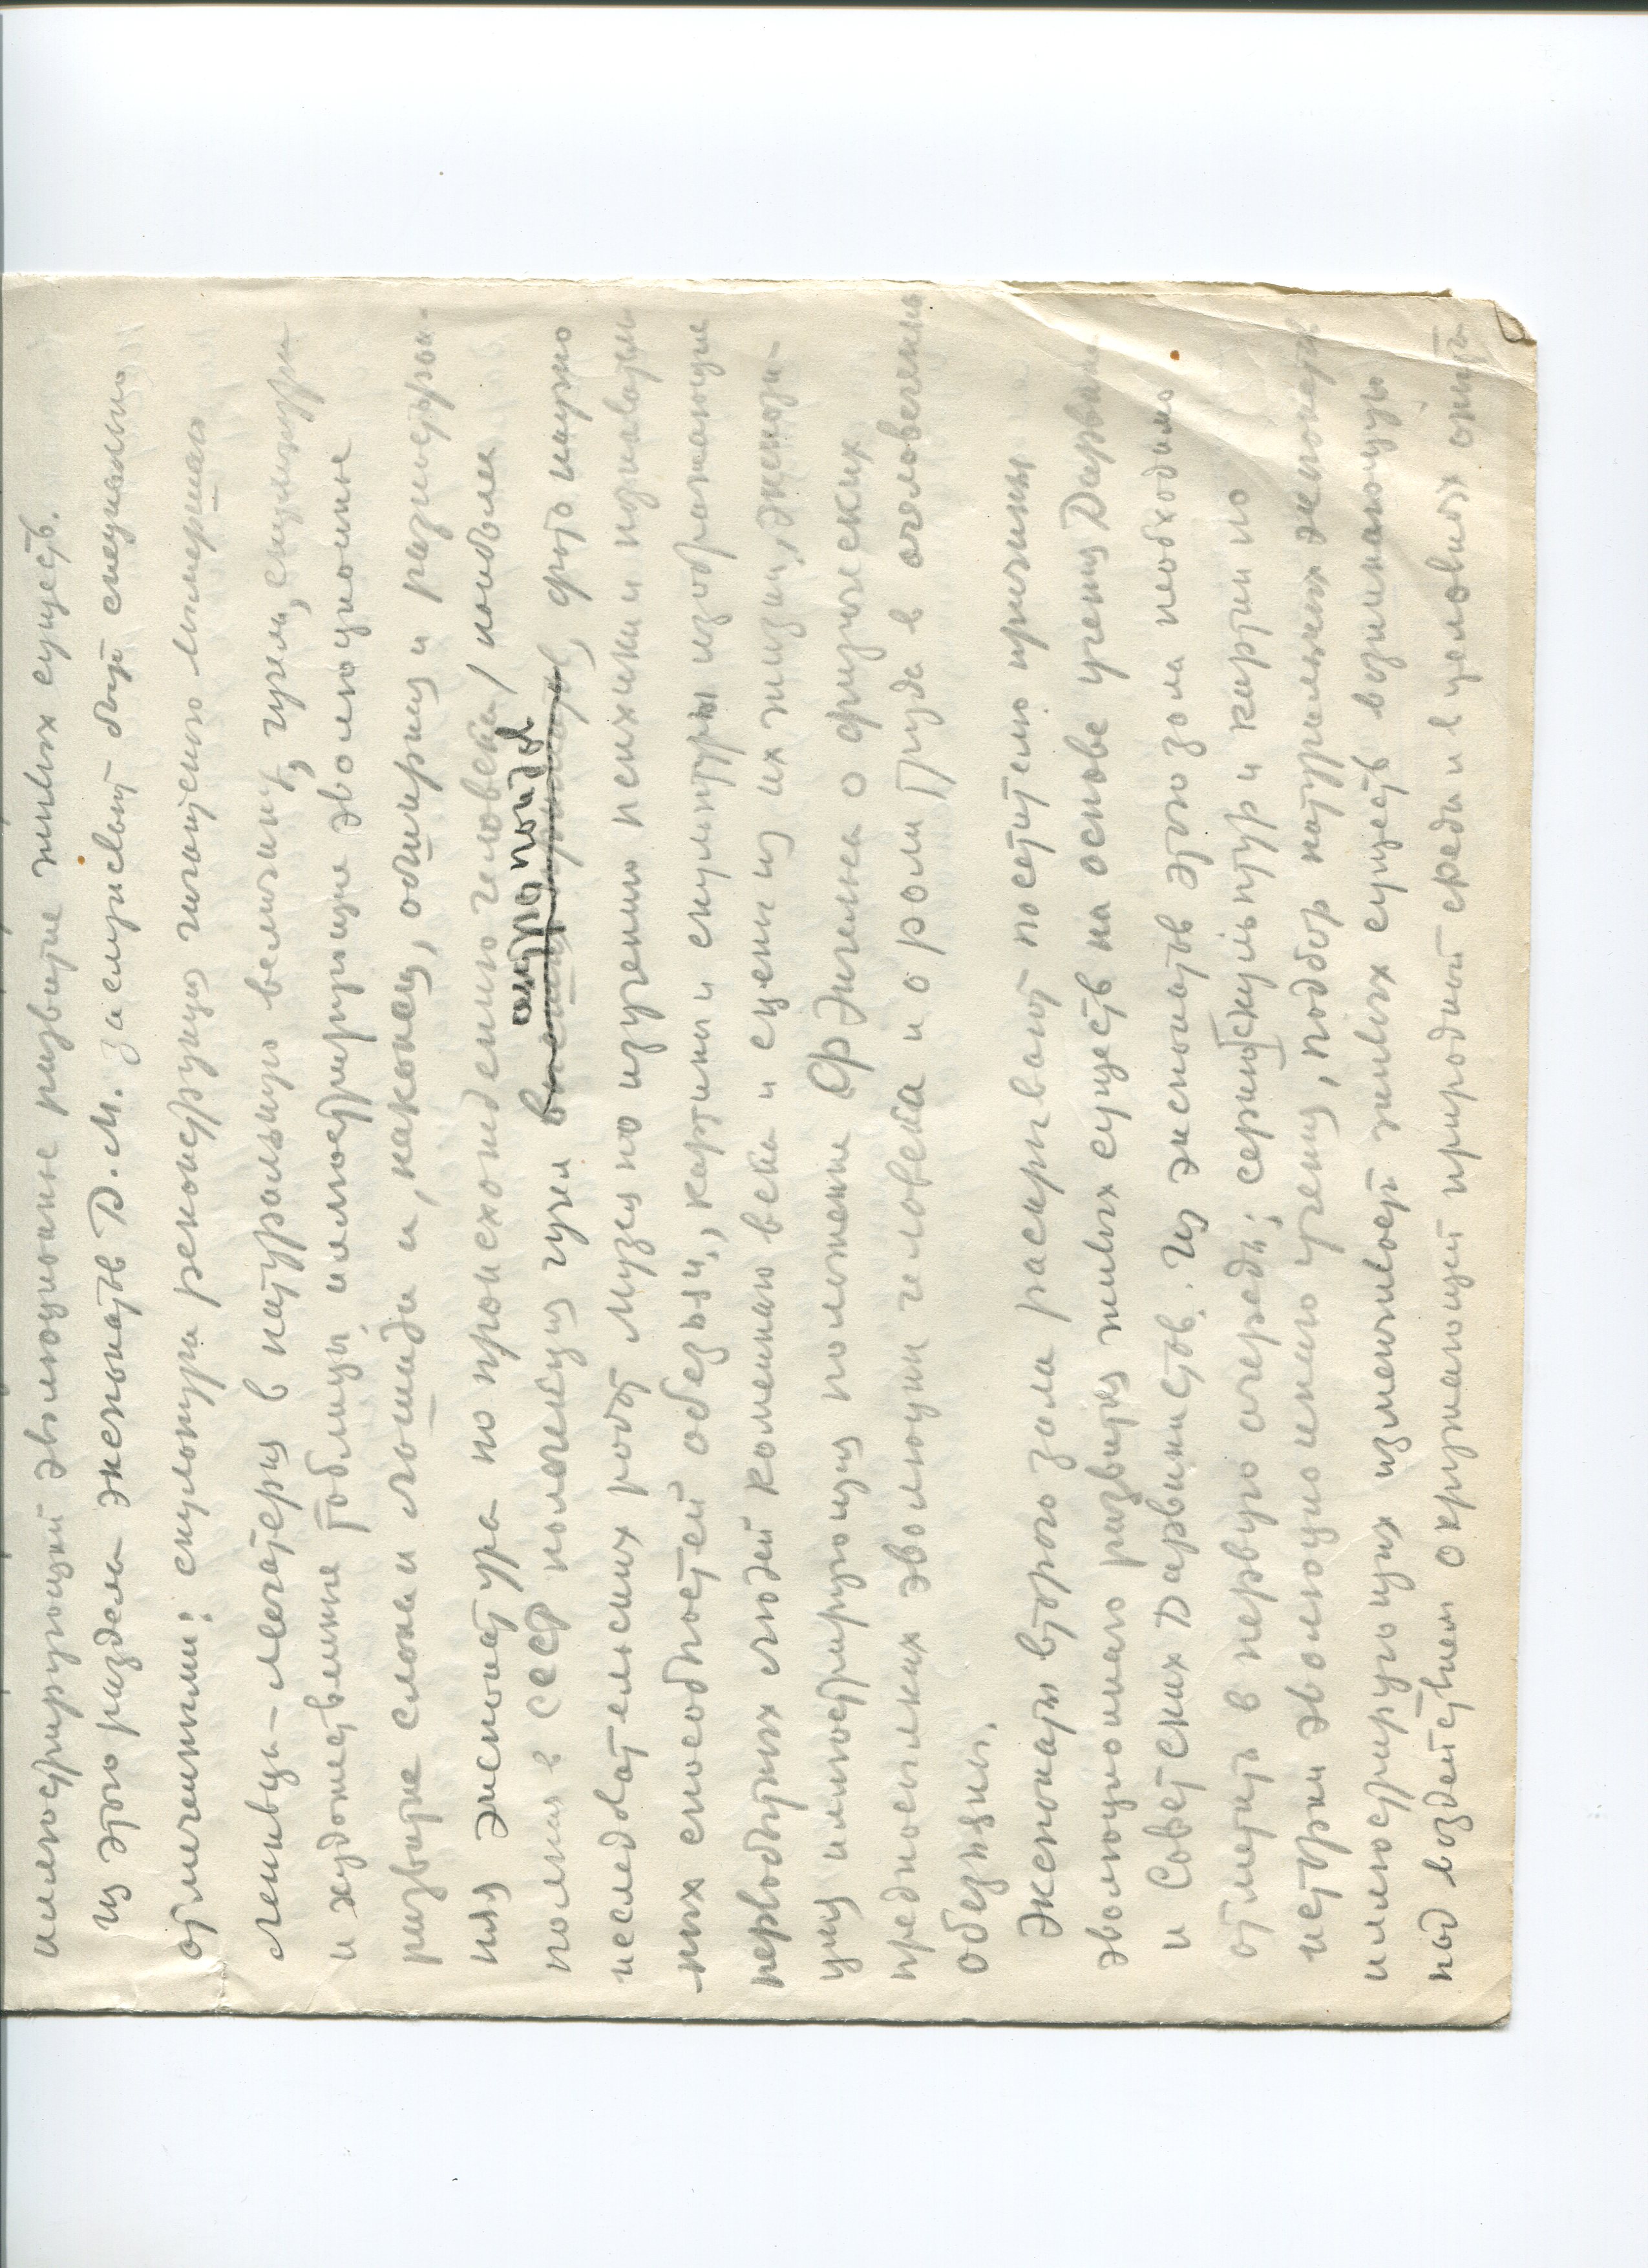 иллюстрирующий эволюционное развитие живых существ.
Из этого раздела экспонатов Д.М. заслуживают быть специально
отмеченными: скульптура реконструкция гигантского вымершаго
ленивца-мегатерия в натуральную величину, чучела, скульптуры
и художественные таблицы, иллюстрирующие эволюционное
развитие слона и лошади и, наконец, обширная и разносторон-
няя экспонатура по происхождению человека / наиболее
полная в СССР коллекция чучел антропоидов, фото научно
исследовательских работ Музея по изучению психики и познаватель
ных способностей обезьян, картины и скульптуры изображающие
первобытных людей каменного века и сцены из их жизни, экспози-
ция иллюстрирующая положение Ф Энгельса о физических
предпосылках эволюции человека и о роли труда в очеловечении
обезьяны.
Экспонаты второго зала раскрывают посетителю причины
эволюционного развития живых существ на основе учения Дарвина
и Советских Дарвинистов. Из экспонатов этого зала необходимо
отметить в первую очередь: серию скульптур и картин по
истории эволюционного учения, подбор натуральных экспонатов
иллюстрирующих изменчивость живых существ возникающую
под воздействием окружающей природной среды и в условиях